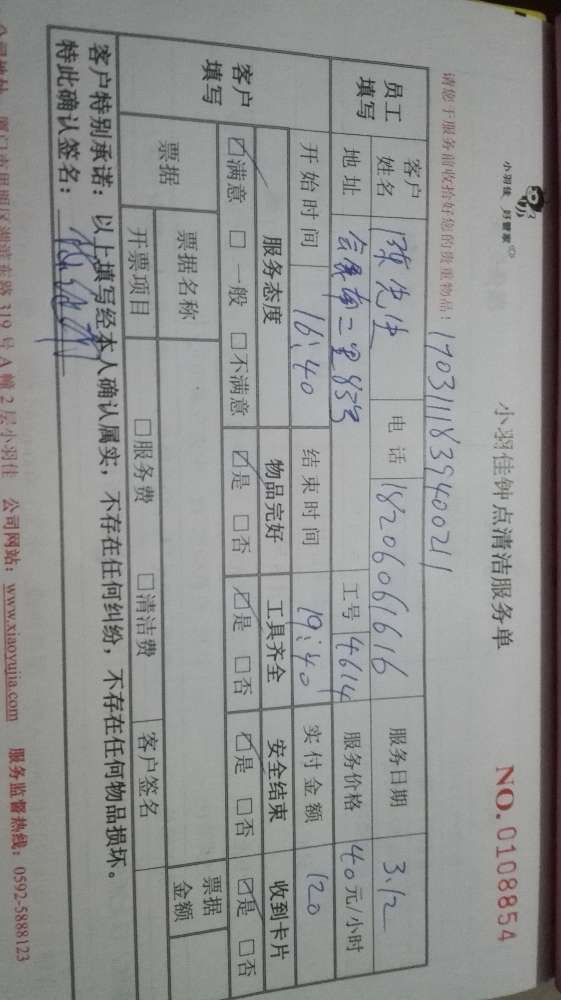 小羽佳 好管家
小羽佳钟点清洁服务单
NO.0108854
请您于服务前收拾好您的贵重物品！
170311183940021
员工填写 客户姓名 陈先生 电话 18206061616 服务日期 3.12
地址 会展南二里85号 工号 4614 服务价格 40元/小时
客户填写 开始时间 16:40 结束时间 19:40 实付金额 120
服务态度 物品完好 工具齐全 安全结束 收到卡片
☑满意 □一般 □不满意 ☑是 □否 ☑是 □否 ☑是 □否 ☑是 □否
票据 票据名称 票据金额
开票项目 □服务费 □清洁费 客户签名
客户特别承诺：以上填写经本人确认属实，不存在任何纠纷，不存在任何物品损坏。
特此确认签名：
公司地址 厦门市思明区湖滨东路319号A幢2层小羽佳 公司网站：www.xiaoyujia.com 服务监督热线：0592-5888123